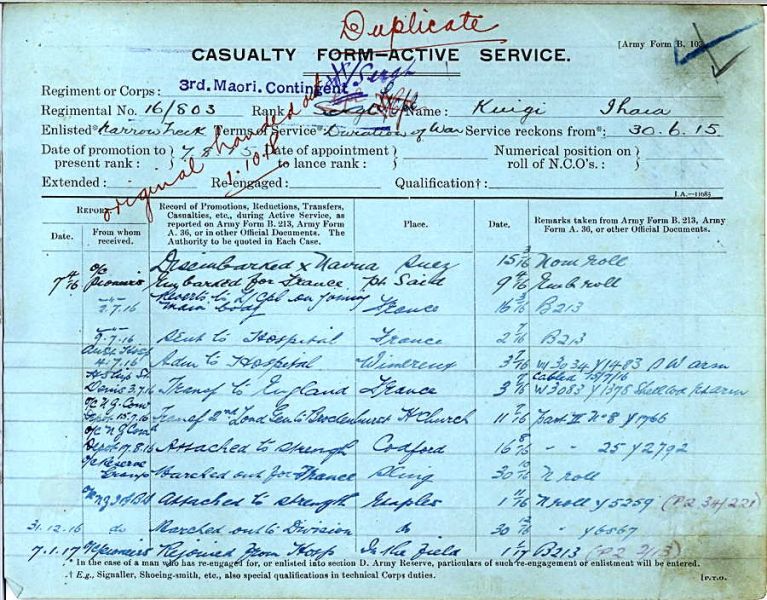 Duplicate
[Army Form B. 103
CASUALTY FORM—ACTIVE SERVICE.
Regiment or Corps: 3rd. Maori. Contingent.
Regimental No. 16/803 Rank Name: Kuigi Ihaia
Enlisted* Narrow Neck Terms of Service* Duration of War Service reckons from*: 30.6.15
Date of promotion to present rank: 7 8 5 Date of appointment to lance rank: Numerical position on roll of N.C.O's.:
original handed
1.10.18
Extended: Re-engaged: Qualification†:
I.A.—11085
Report. Date. From whom received.
Record of Promotions, Reductions, Transfers, Casualties, etc., during Active Service, as reported on Army Form B. 213, Army Form A. 36, or in other Official Documents. The Authority to be quoted in Each Case.
Place.
Date.
Remarks taken from Army Form B. 213, Army Form A. 36, or other Official Documents.
Disembarked x Navua Suez 15 3/16 Nom roll
7 4/16 o/c Pioneers Embarked for France Pt. Said 9 4/16 Emb roll
2.7.16 Reverts to L/Cpl on joining main body France 16 B213
2.7.16 Sent to Hospital France 2 7/16 B213
4.7.16 Adm to Hospital Wimereux 3 7/16 W3034 Y1483 S W arm
Cabled 15/7/16
H. Ship St. Denis 3.7.16 Transf to England France 3 7/16 W3083 Y1378
15.7.16 Transf 2nd Lond Gen to Brockenhurst H church 11 7/16 Part II N-8 Y1766
Depot 17.8.16 Attached to strength Codford 16 8/16 - 25 Y2792
o/c Reserve Group Marched out for France Sling 30 10/16 N roll
Attached to strength Etaples 1 11/16 N roll Y5259 (P2 34/221)
31.12.16 do Marched out to Division do 30 12/16 " Y6567
7.1.17 o/c Pioneers Rejoined from Hosp In the Field 1 1/17 B213 (P2 2/13)
* In the case of a man who has re-engaged for, or enlisted into section D. Army Reserve, particulars of such re-engagement or enlistment will be entered.
† E.g., Signaller, Shoeing-smith, etc., also special qualifications in technical Corps duties.
[P.T.O.